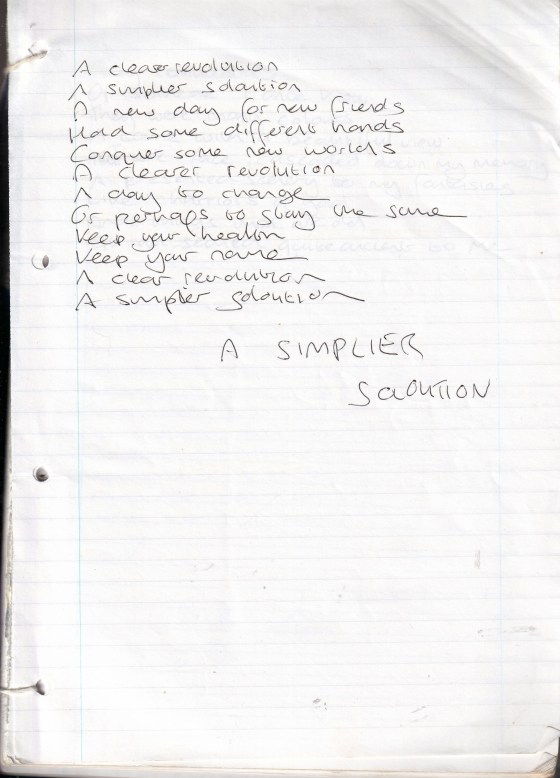 A clearer revolution
A simplier soloution
A new day for new friends
Hold some different hands
Conquer some new worlds
A clearer revolution
A day to change
Or perhaps to stay the same
Keep your health
Keep your name
A clear revolution
A simplier soloution
A SIMPLIER
SOLOUTION